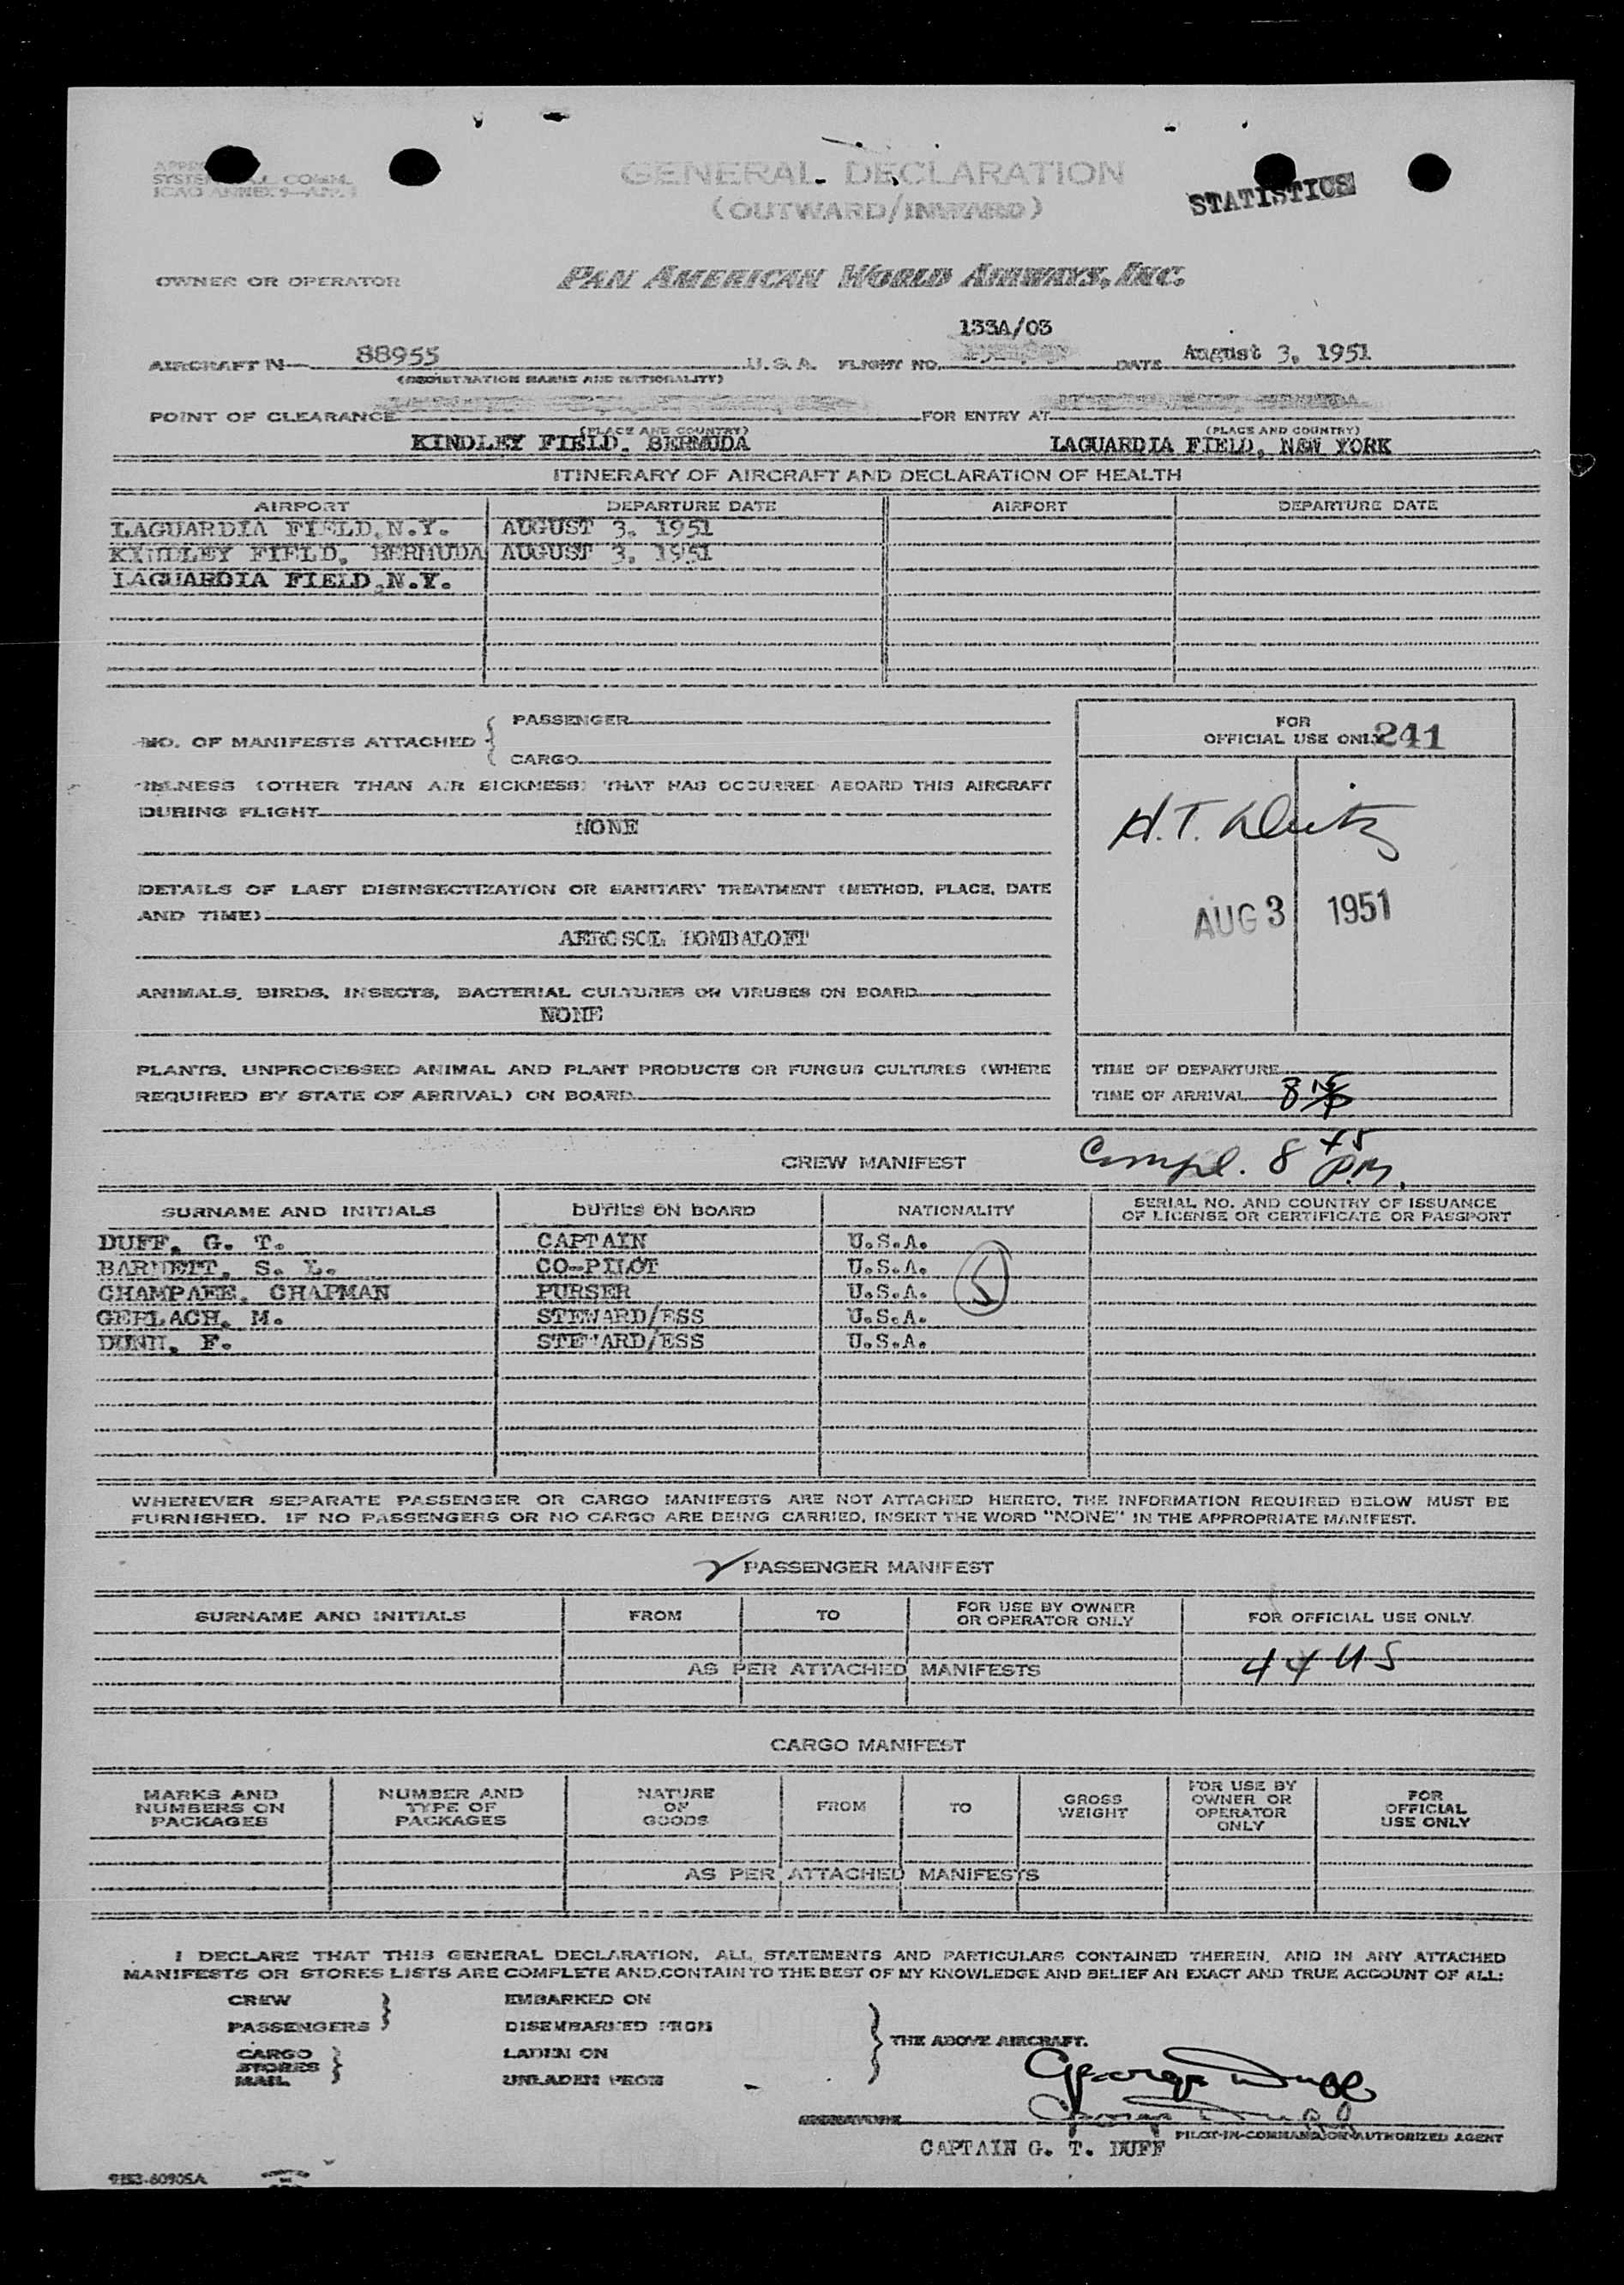 STATISTICS
GENERAL DECLARATION
(OUTWARD/INWARD)
OWNER OR OPERATOR PAN AMERICAN WORLD AIRWAYS, INC.
133A/03
AIRCRAFT N— 88955 U.S.A. FLIGHT NO. DATE August 3, 1951
(REGISTRATION MARKS AND NATIONALITY)
POINT OF CLEARANCE FOR ENTRY AT
(PLACE AND COUNTRY) (PLACE AND COUNTRY)
KINDLEY FIELD, BERMUDA LAGUARDIA FIELD, NEW YORK
ITINERARY OF AIRCRAFT AND DECLARATION OF HEALTH
AIRPORT DEPARTURE DATE AIRPORT DEPARTURE DATE
LAGUARDIA FIELD,N.Y. AUGUST 3, 1951
KINDLEY FIELD, BERMUDA AUGUST 3, 1951
LAGUARDIA FIELD,N.Y.
NO. OF MANIFESTS ATTACHED { PASSENGER
CARGO
FOR
OFFICIAL USE ONLY 241
ILLNESS (OTHER THAN AIR SICKNESS) THAT HAS OCCURRED ABOARD THIS AIRCRAFT
DURING FLIGHT
NONE
H.T.
DETAILS OF LAST DISINSECTIZATION OR SANITARY TREATMENT (METHOD, PLACE, DATE
AND TIME)
AUG 3 1951
AEROSOL BOMBALOFT
ANIMALS, BIRDS, INSECTS, BACTERIAL CULTURES OR VIRUSES ON BOARD
NONE
PLANTS, UNPROCESSED ANIMAL AND PLANT PRODUCTS OR FUNGUS CULTURES (WHERE
REQUIRED BY STATE OF ARRIVAL) ON BOARD
TIME OF DEPARTURE
TIME OF ARRIVAL 8
Compl. 8 45 P.M.
CREW MANIFEST
SURNAME AND INITIALS DUTIES ON BOARD NATIONALITY SERIAL NO. AND COUNTRY OF ISSUANCE
OF LICENSE OR CERTIFICATE OR PASSPORT
DUFF, G. T. CAPTAIN U.S.A.
BARNETT, S. L. CO-PILOT U.S.A.
CHAMPAEE, CHAPMAN PURSER U.S.A. 5
GERLACH, M. STEWARD/ESS U.S.A.
DUNN, F. STEWARD/ESS U.S.A.
WHENEVER SEPARATE PASSENGER OR CARGO MANIFESTS ARE NOT ATTACHED HERETO, THE INFORMATION REQUIRED BELOW MUST BE
FURNISHED. IF NO PASSENGERS OR NO CARGO ARE BEING CARRIED, INSERT THE WORD "NONE" IN THE APPROPRIATE MANIFEST.
PASSENGER MANIFEST
SURNAME AND INITIALS FROM TO FOR USE BY OWNER
OR OPERATOR ONLY FOR OFFICIAL USE ONLY
AS PER ATTACHED MANIFESTS 44 US
CARGO MANIFEST
MARKS AND
NUMBERS ON
PACKAGES NUMBER AND
TYPE OF
PACKAGES NATURE
OF
GOODS FROM TO GROSS
WEIGHT FOR USE BY
OWNER OR
OPERATOR
ONLY FOR
OFFICIAL
USE ONLY
AS PER ATTACHED MANIFESTS
I DECLARE THAT THIS GENERAL DECLARATION, ALL STATEMENTS AND PARTICULARS CONTAINED THEREIN, AND IN ANY ATTACHED
MANIFESTS OR STORES LISTS ARE COMPLETE AND CONTAIN TO THE BEST OF MY KNOWLEDGE AND BELIEF AN EXACT AND TRUE ACCOUNT OF ALL:
CREW EMBARKED ON
PASSENGERS DISEMBARKED FROM
THE ABOVE AIRCRAFT.
CARGO LADEN ON
STORES
MAIL UNLADEN FROM
George Duff
George Duff
PILOT-IN-COMMAND OR AUTHORIZED AGENT
CAPTAIN G. T. DUFF